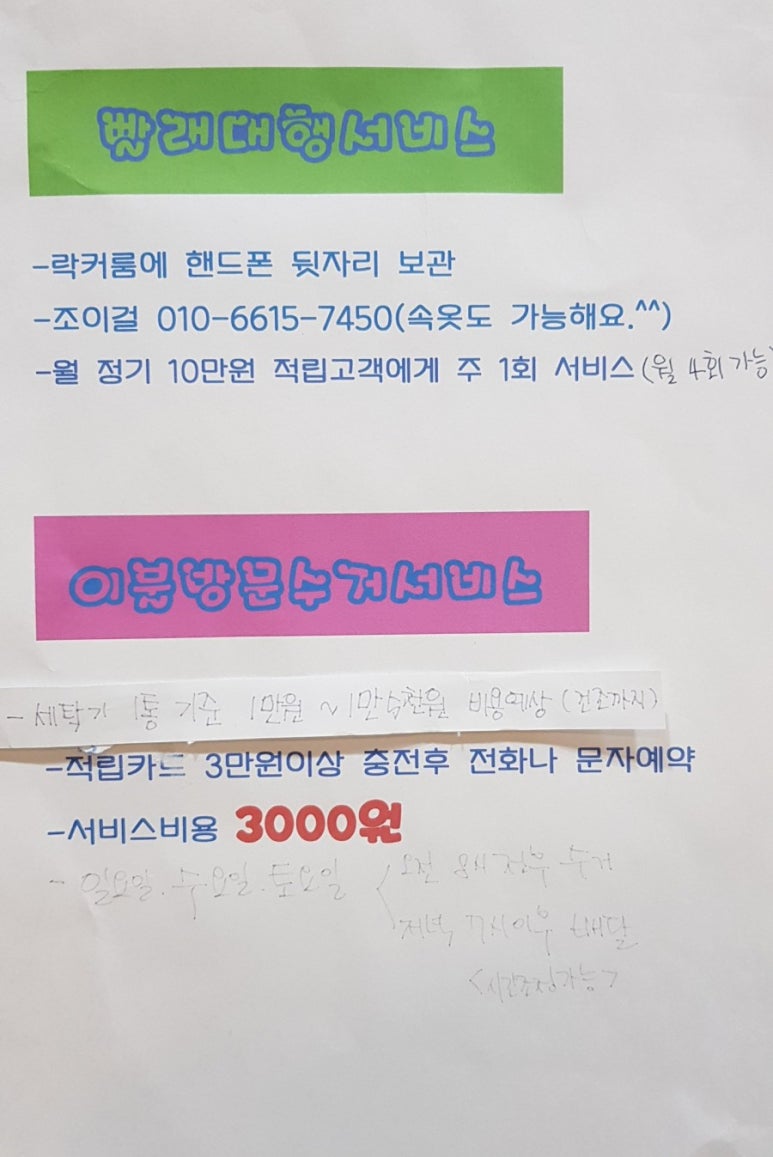 빨래대행서비스
-락커룸에 핸드폰 뒷자리 보관
-조이걸 010-6615-7450(속옷도 가능해요.^^)
-월 정기 10만원 적립고객에게 주 1회 서비스(월 4회 가능)
이불방문수거서비스
-세탁기 1통 기준 1만원 ~1만 비용예상 (건조까지)
-적립카드 3만원이상 충전후 전화나 문자예약
-서비스비용 3000원
- 일요일.수요일.토요일 < 오전 8시 전후 수거
저녁 7시이후 배달
<시간조정가능>